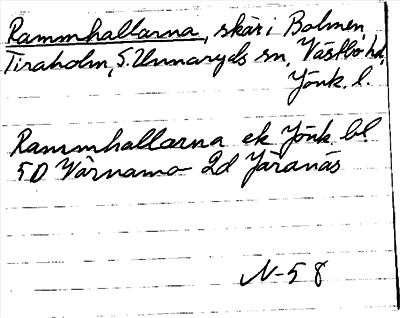 Rammhallarna, skär i Bolmen,
Tiraholm, S. Unnaryds sn, Västbo hd,
Jönk. l.
Rammhallarna ek Jönk. bl
5D Värnamo 2d Järanäs
N-58